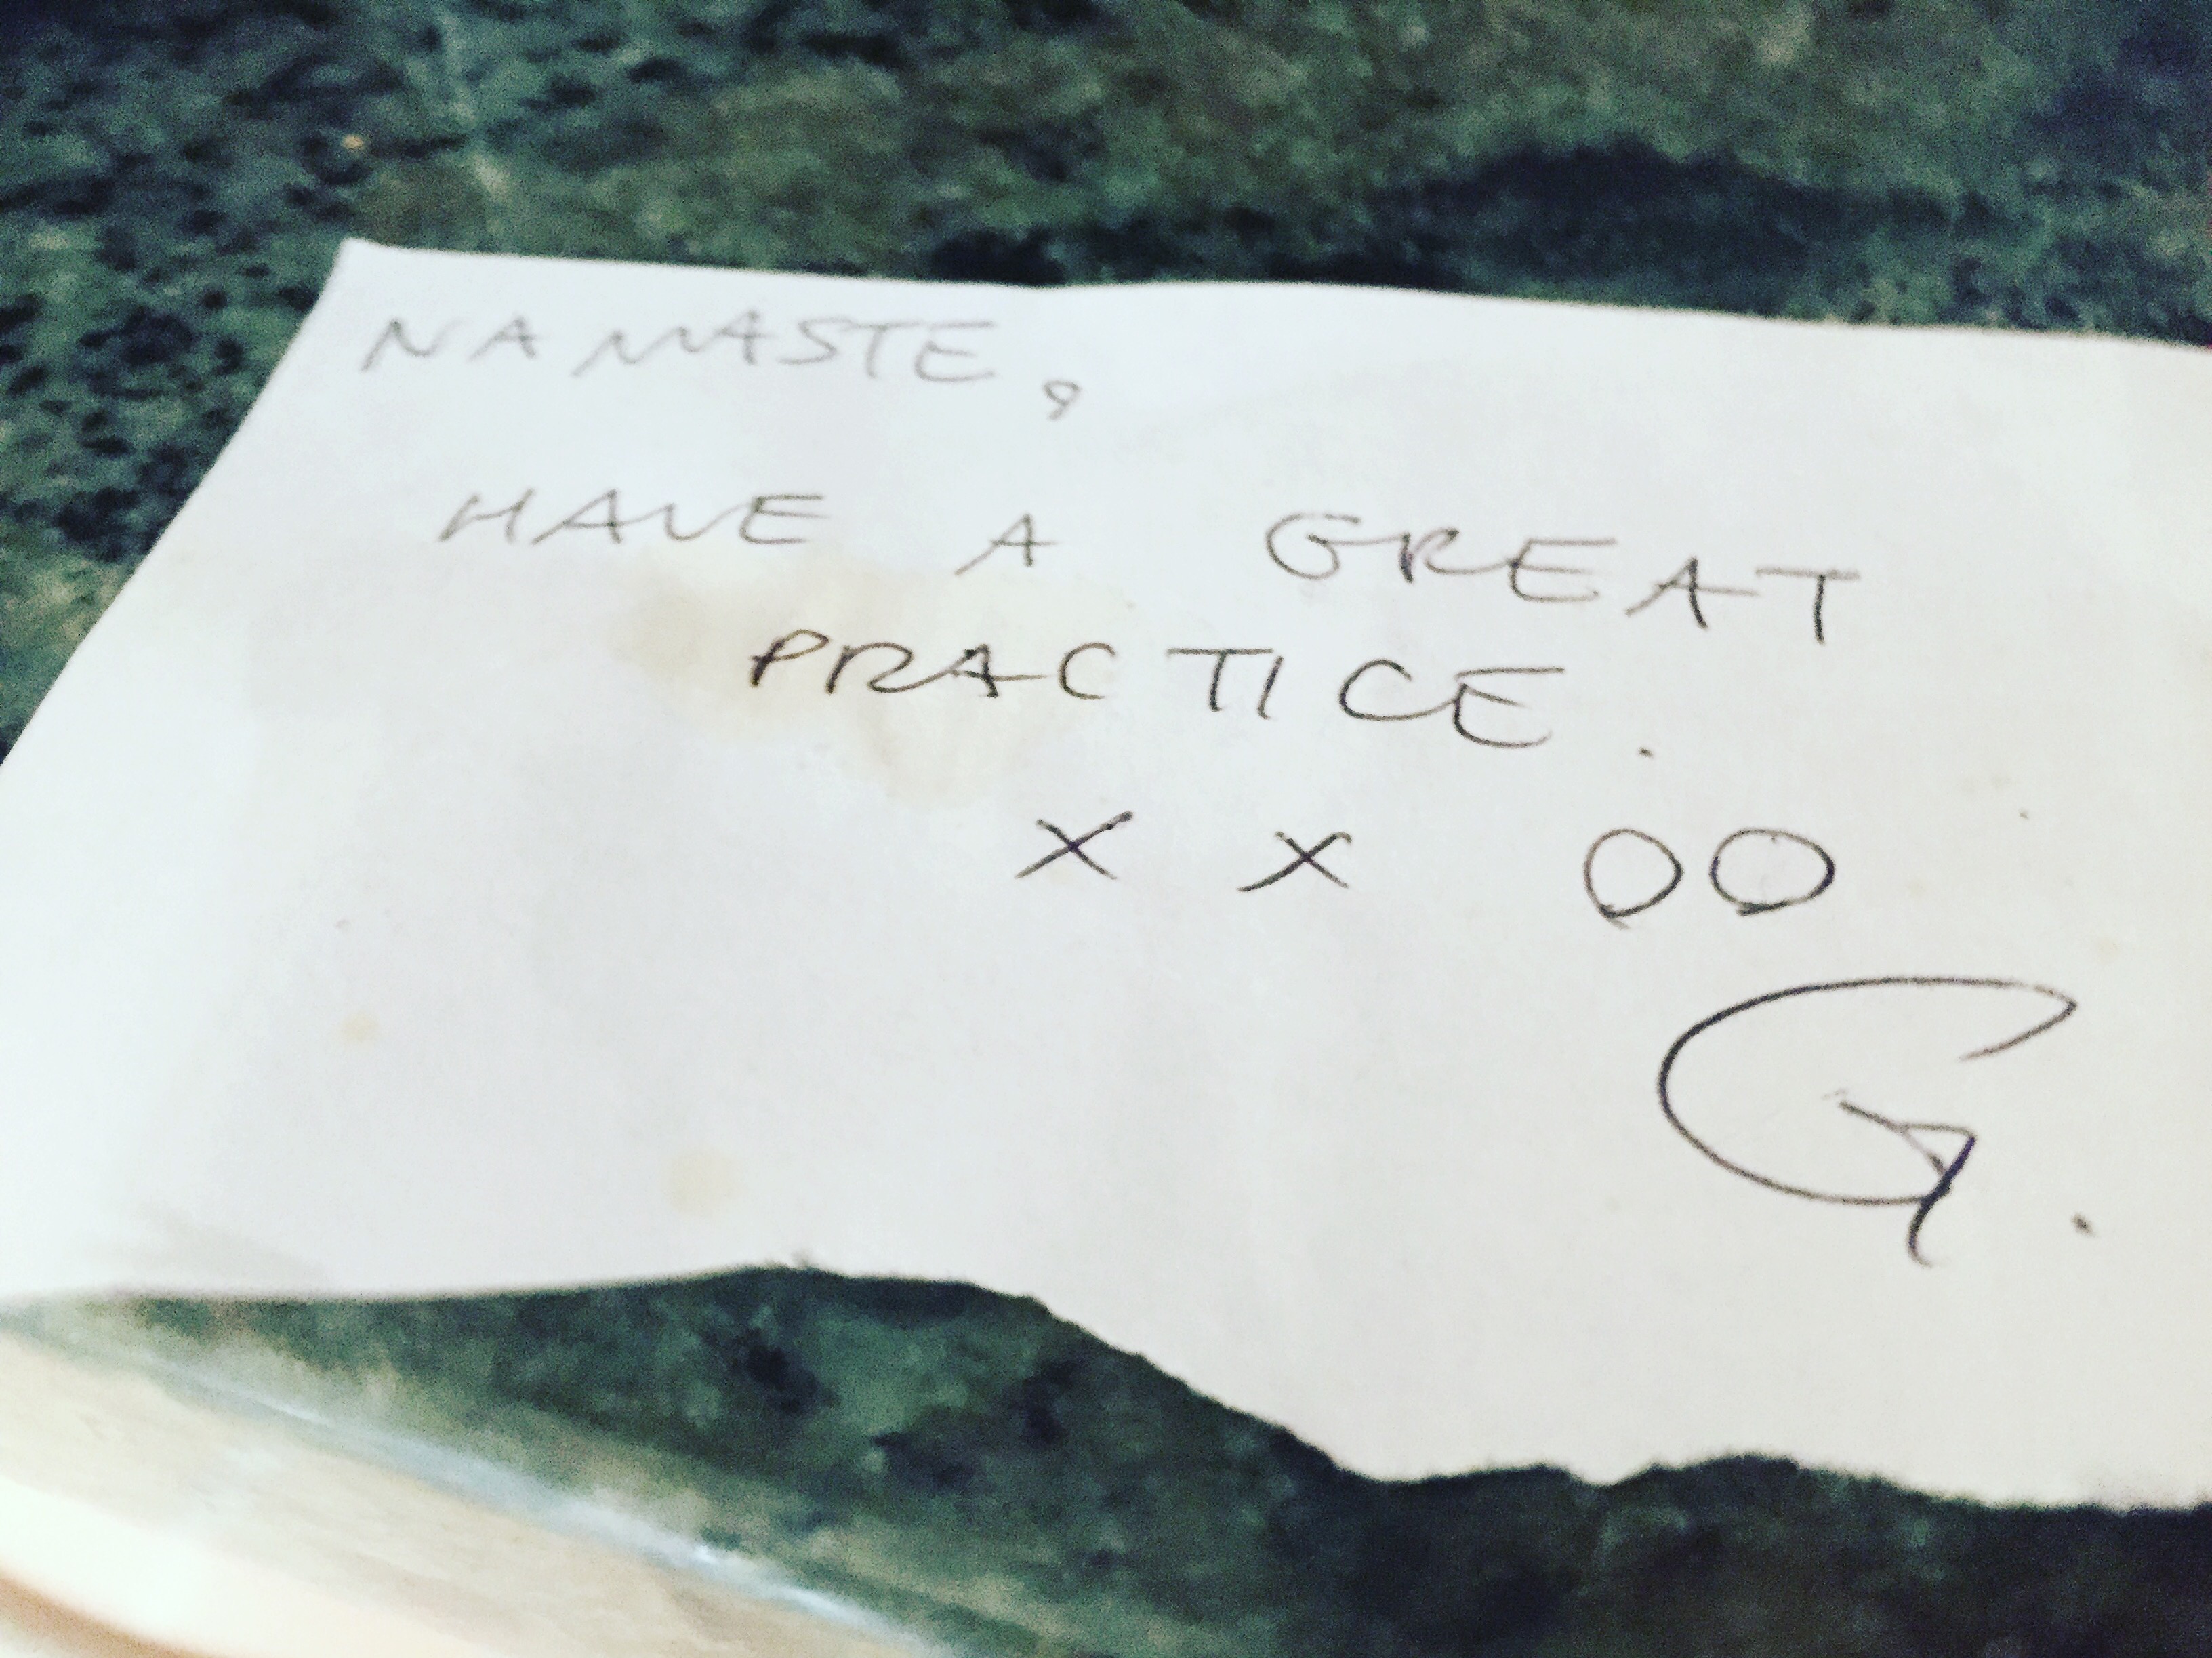 NAMASTE,
HAVE A GREAT
PRACTICE.
X X OO
G.